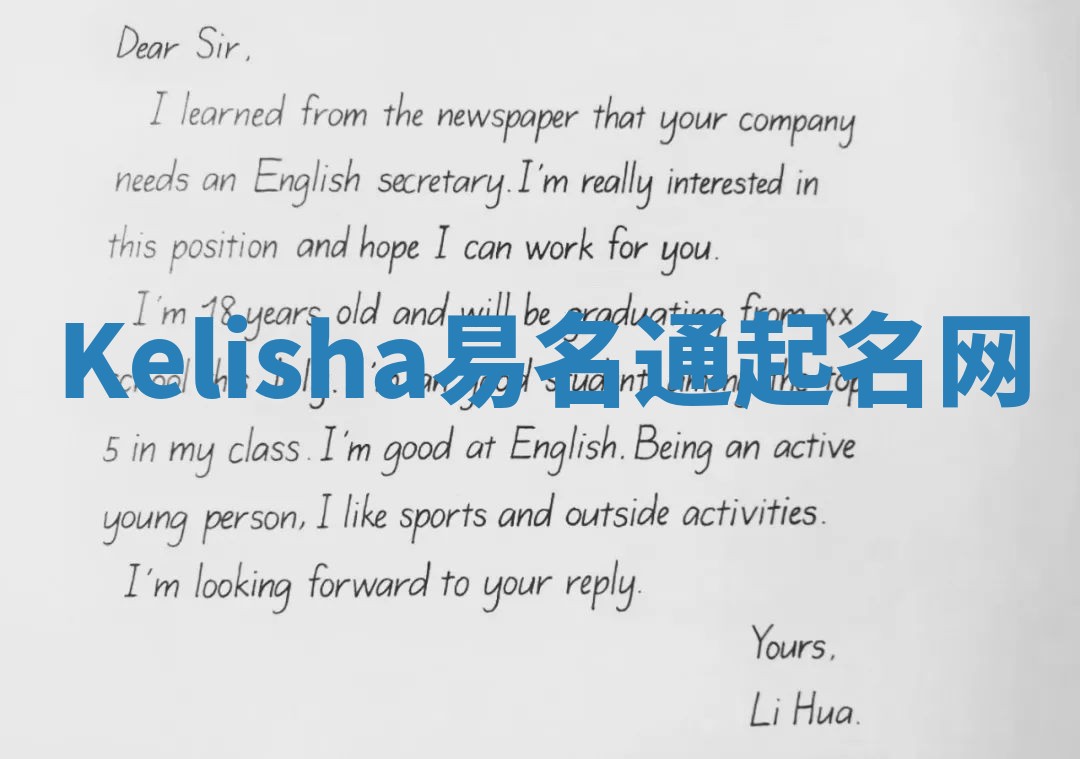 Dear Sir,
I learned from the newspaper that your company
needs an English secretary. I'm really interested in
this position and hope I can work for you.
I'm 18 years old and will be graduating from xx
Kelisha易名通起名网
school this July. I'm a good student among the top
5 in my class. I'm good at English. Being an active
young person, I like sports and outside activities.
I'm looking forward to your reply.
Yours,
Li Hua.